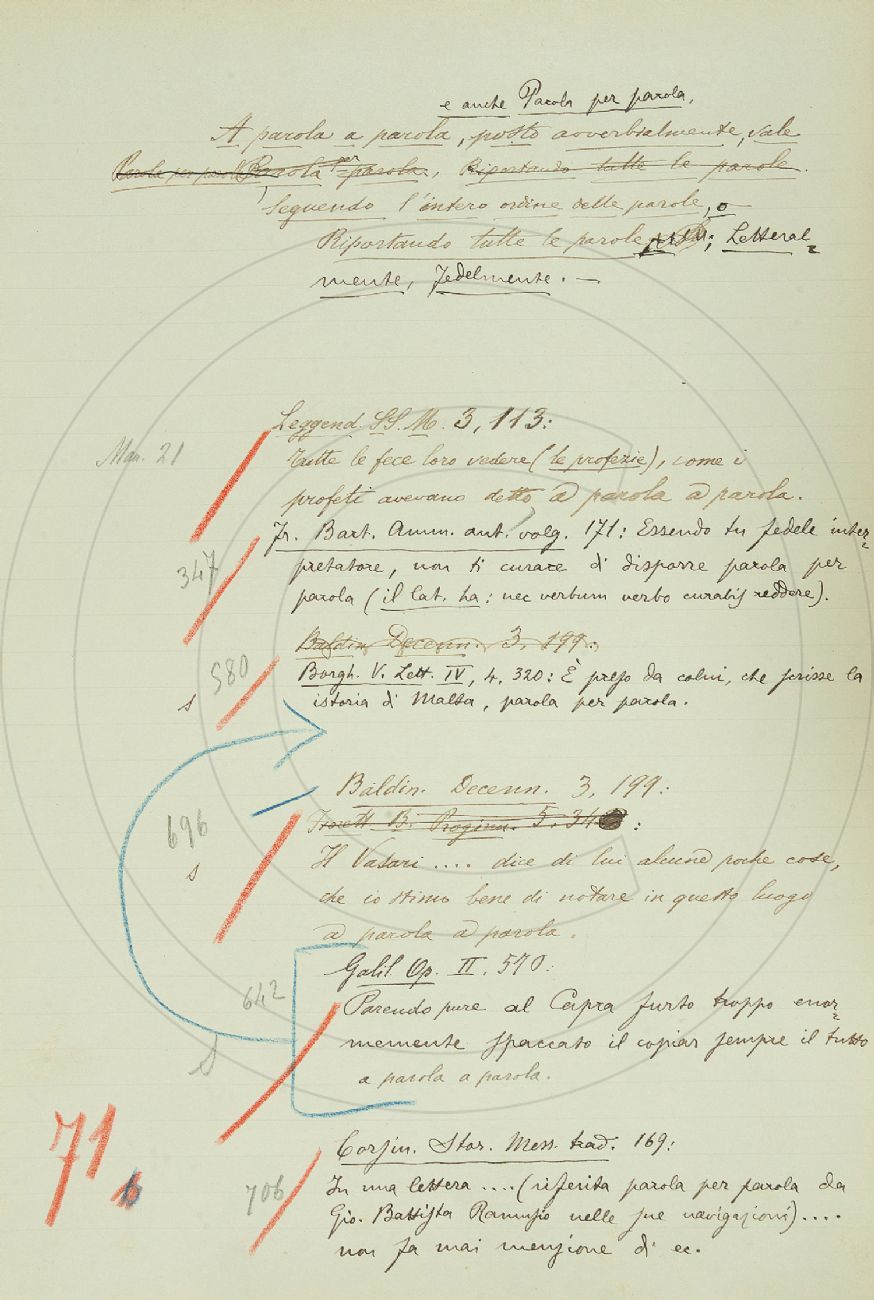 e anche Parola per parola,
A parola a parola, posto avverbialmente, vale
Parola per parola Parola per parola, Riportando tutte le parole.
Seguendo l'intero ordine delle parole, o
Riportando tutte le parole; Letteral=
mente, Fedelmente. —
Leggend. SS. M. 3, 113:
Man. 21
Tutte le fece loro vedere (le profezie), come i
profeti avevano detto a parola a parola.
Fr. Bart. Amm. ant. volg. 171: Essendo tu fedele inter=
347
pretatore, non ti curare di disporre parola per
parola (il lat. ha: nec verbum verbo curabis reddere).
Baldin. Decenn. 3, 199:
580
Borgh. V. Lett. IV, 4. 320: È preso da colui, che scrisse la
s
istoria di Malta, parola per parola.
Baldin. Decenn. 3, 199:
696
B. 5. :
Il Vasari .... dice di lui alcune poche cose,
s
che io stimo bene di notare in questo luogo
a parola a parola.
Galil. Op. II. 570:
642
Parendo pure al Capra furto troppo enor=
memente spaccato il copiar sempre il tutto
a parola a parola.
71
6
Corsin. Stor. Mess. trad. 169:
706
In una lettera .... (riferita parola per parola da
Gio. Battista Ramusio nelle sue navigazioni) ....
non fa mai menzione di ec.